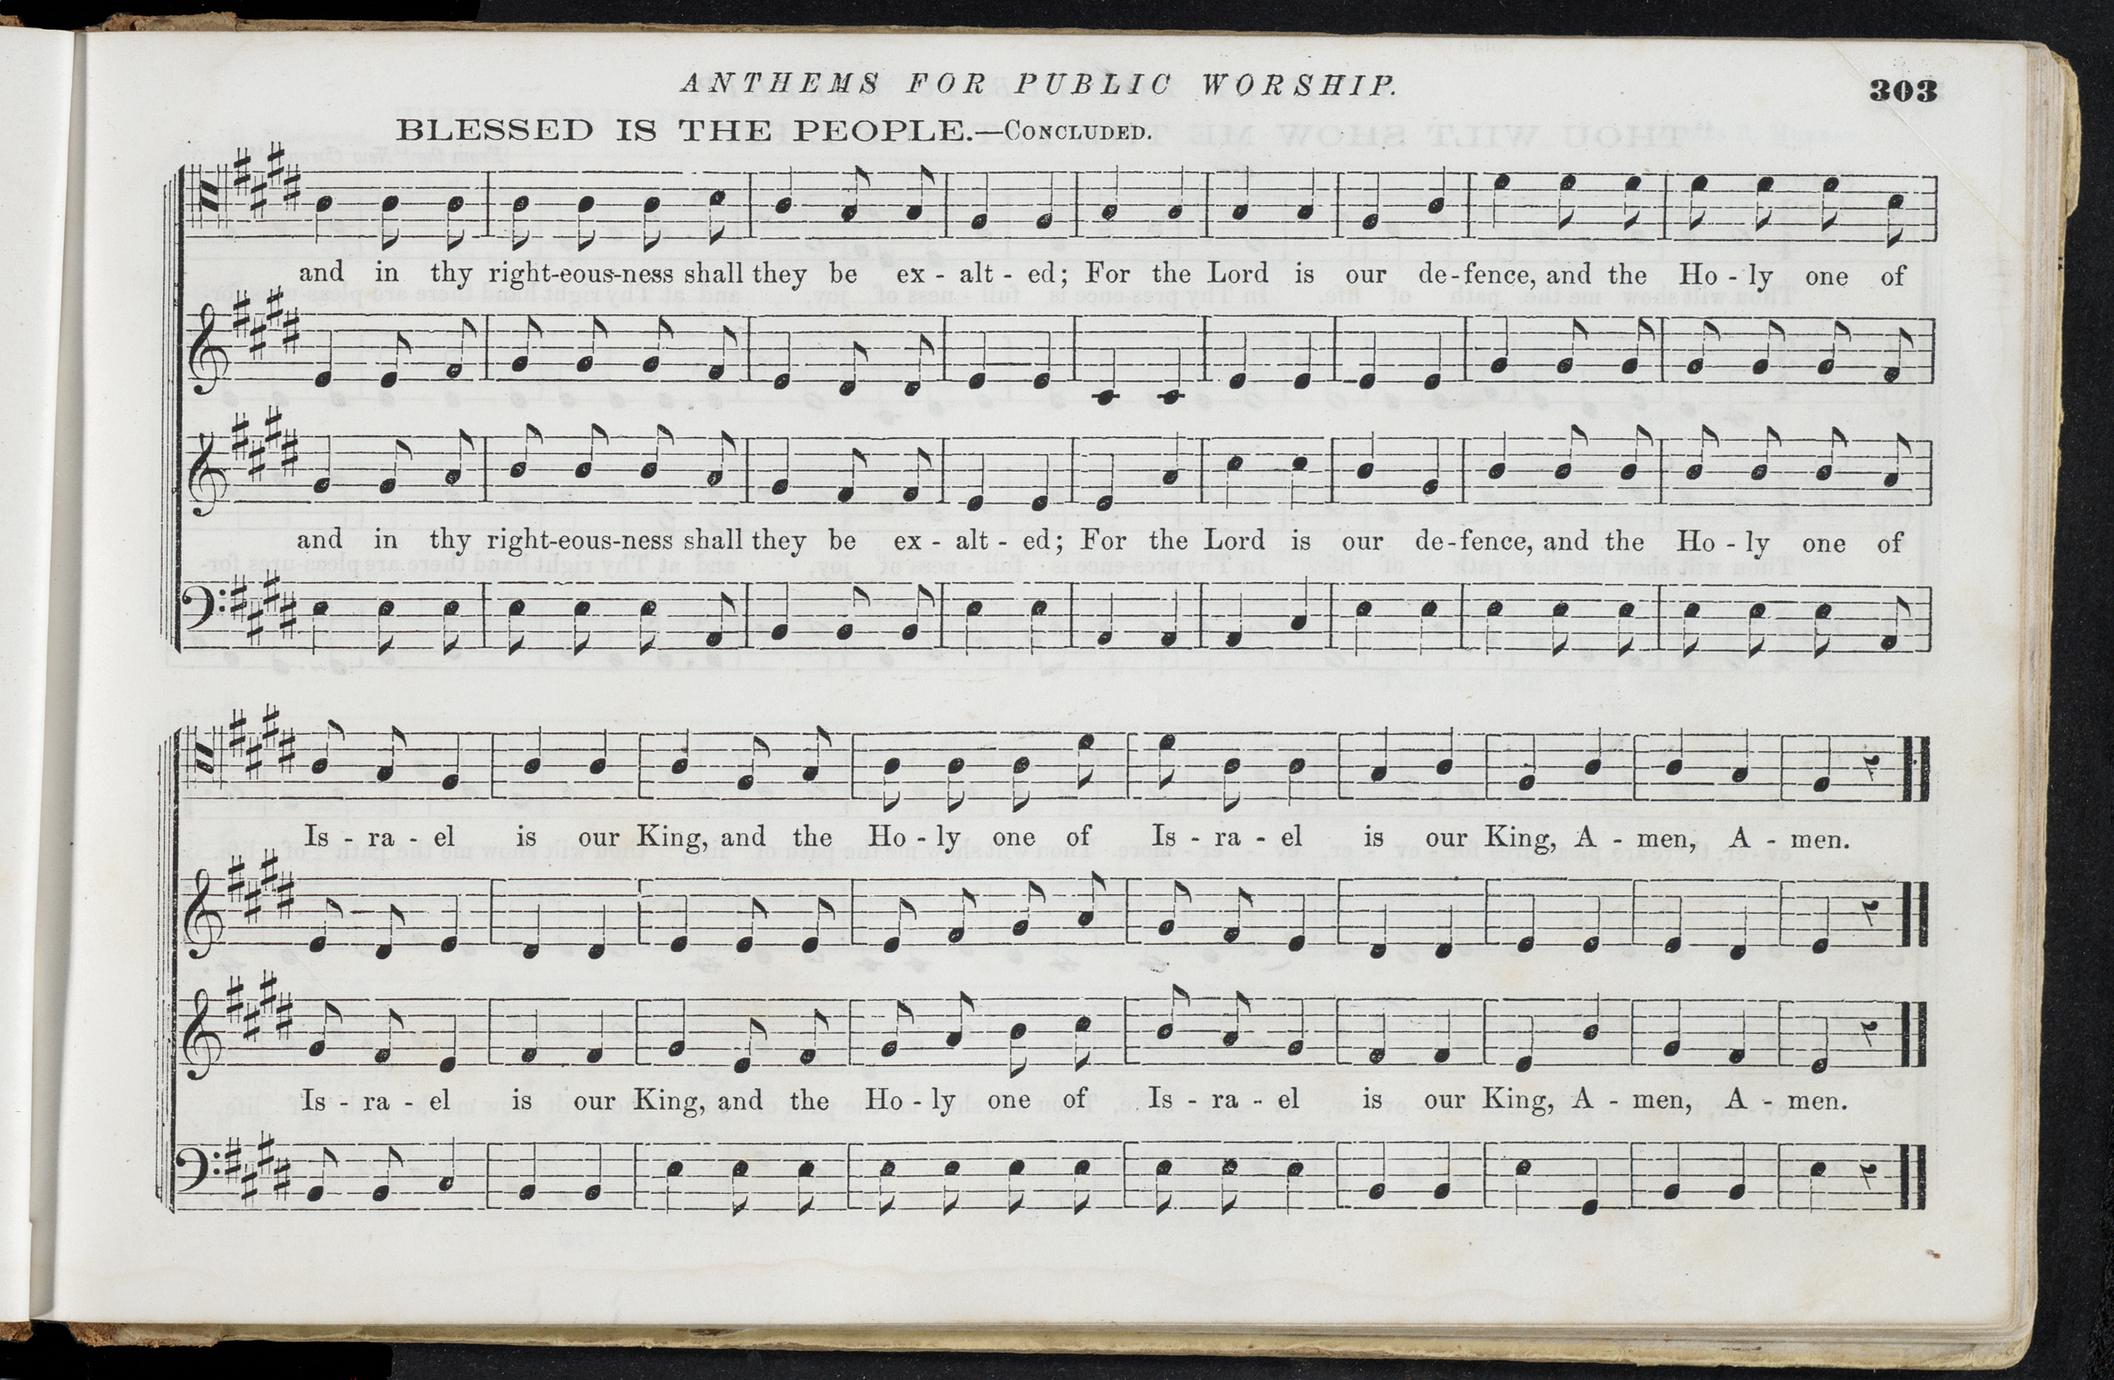 ANTHEMS FOR PUBLIC WORSHIP.
303
BLESSED IS THE PEOPLE.—CONCLUDED.
and in thy right-eous-ness shall they be ex - alt - ed; For the Lord is our de-fence, and the Ho - ly one of
and in thy right-eous-ness shall they be ex - alt - ed; For the Lord is our de-fence, and the Ho - ly one of
Is - ra - el is our King, and the Ho - ly one of Is - ra - el is our King, A - men, A - men.
Is - ra - el is our King, and the Ho - ly one of Is - ra - el is our King, A - men, A - men.